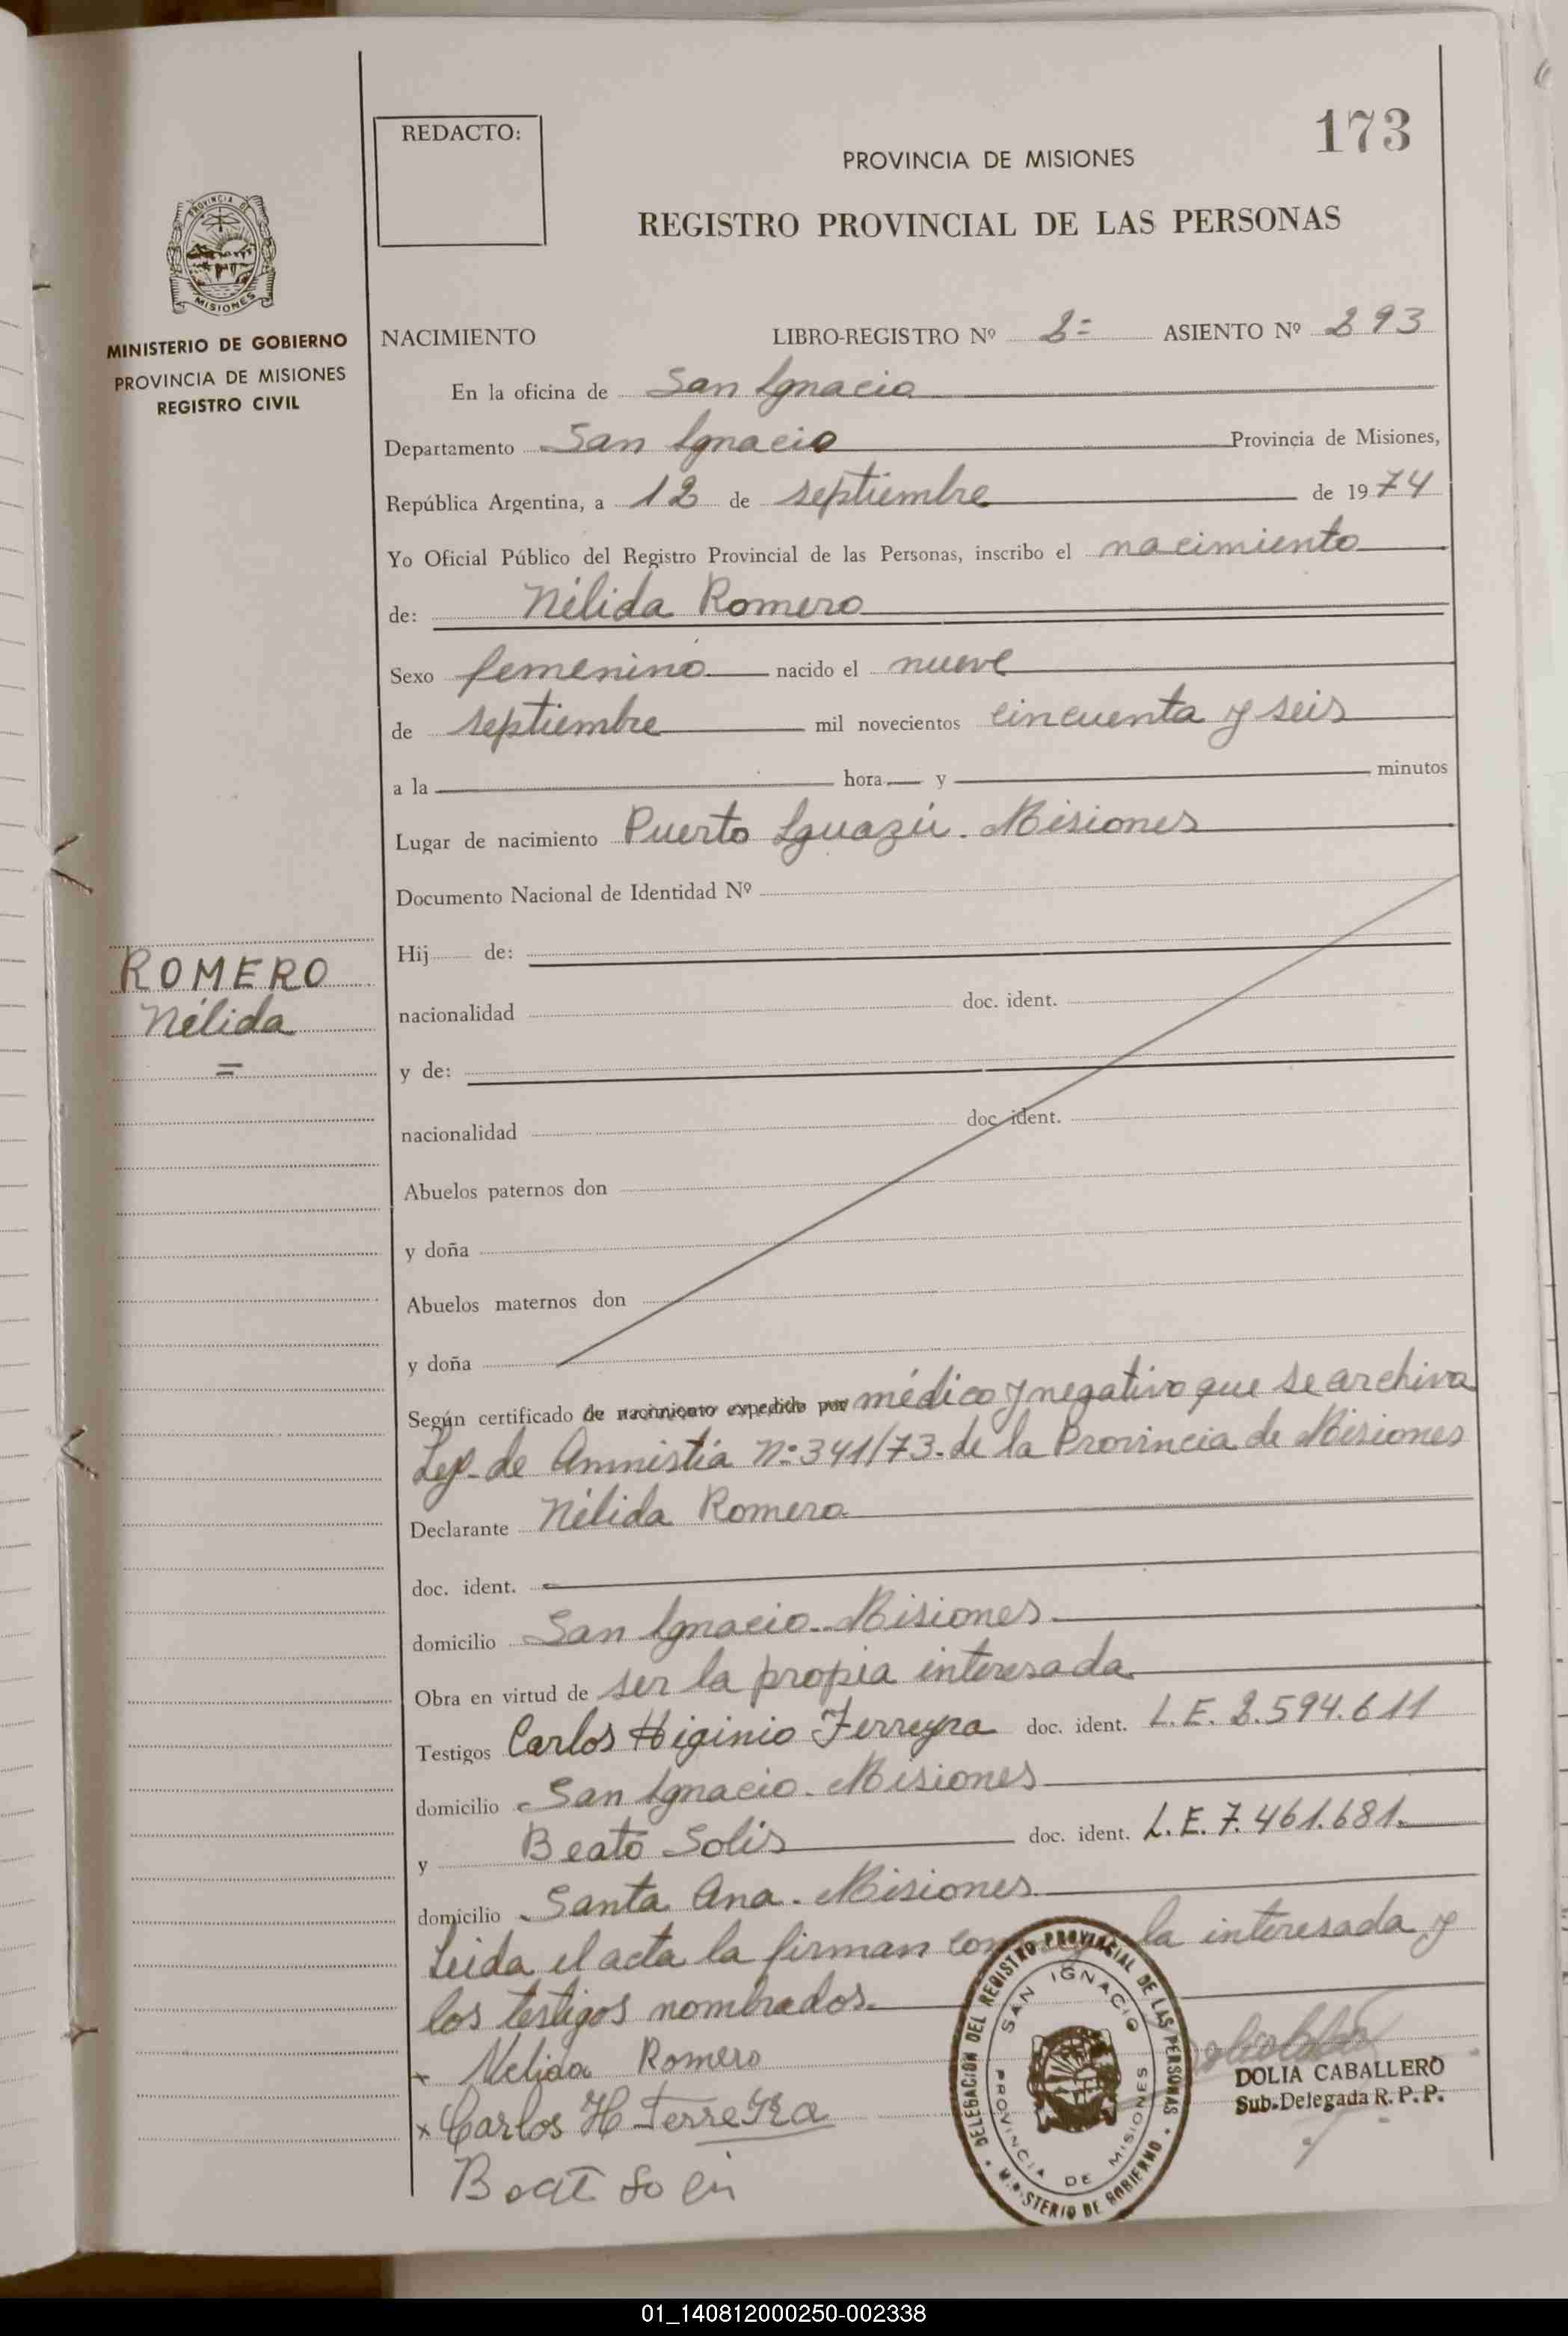 173
REDACTO:
PROVINCIA DE MISIONES
REGISTRO PROVINCIAL DE LAS PERSONAS
PROVINCIA DE
MISIONES
MINISTERIO DE GOBIERNO
PROVINCIA DE MISIONES
REGISTRO CIVIL
NACIMIENTO LIBRO-REGISTRO Nº 2= ASIENTO Nº 293
En la oficina de San Ignacio
Departamento San Ignacio Provincia de Misiones,
República Argentina, a 12 de septiembre de 1974
Yo Oficial Público del Registro Provincial de las Personas, inscribo el nacimiento
de: Nélida Romero
Sexo femenino nacido el nueve
de septiembre mil novecientos cincuenta y seis
a la hora y minutos
Lugar de nacimiento Puerto Iguazú. Misiones
Documento Nacional de Identidad Nº
ROMERO
Nélida
=
Hij de:
nacionalidad doc. ident.
y de:
nacionalidad doc. ident.
Abuelos paternos don
y doña
Abuelos maternos don
y doña
Según certificado de nacimiento expedido por médico y negativo que se archiva
Ley de Amnistía Nº 341/73. de la Provincia de Misiones
Declarante Nélida Romero
doc. ident.
domicilio San Ignacio. Misiones
Obra en virtud de ser la propia interesada
Testigos Carlos Higinio Ferreyra doc. ident. L.E. 2.594.611
domicilio San Ignacio. Misiones
y Beato Solis doc. ident. L.E. 7.461.681.
domicilio Santa Ana. Misiones
Leida el acta la firman la interesada y
los testigos nombrados.
x Nelida Romero
x Carlos H Ferreyra
DELEGACION DEL REGISTRO PROVINCIAL DE LAS PERSONAS
MINISTERIO DE GOBIERNO
SAN IGNACIO
PROVINCIA DE MISIONES
DOLIA CABALLERO
Sub-Delegada R. P. P.
01_140812000250-002338